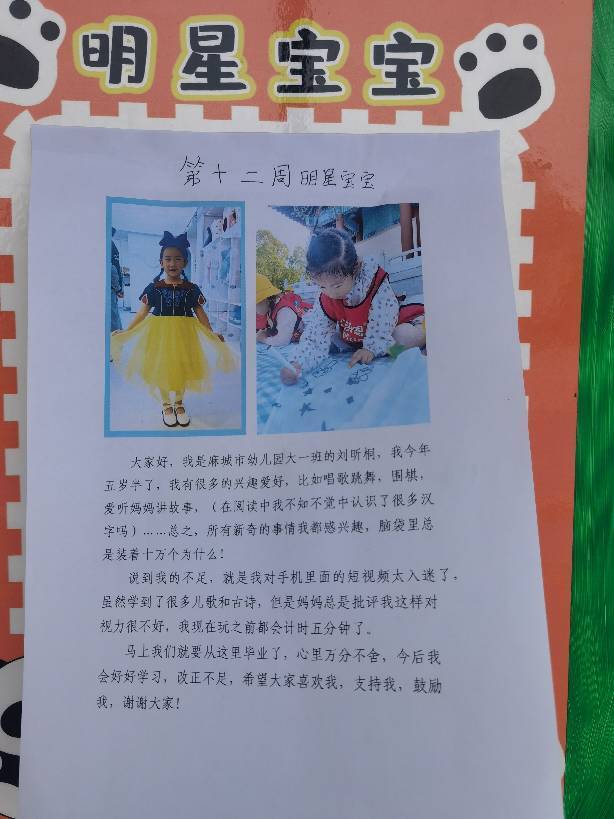 明星宝宝
第十二周明星宝宝
大家好，我是麻城市幼儿园大一班的刘昕桐，我今年
五岁半了，我有很多的兴趣爱好，比如唱歌跳舞，围棋，
爱听妈妈讲故事，（在阅读中我不知不觉中认识了很多汉
字吗）……总之，所有新奇的事情我都感兴趣，脑袋里总
是装着十万个为什么！
说到我的不足，就是我对手机里面的短视频太入迷了，
虽然学到了很多儿歌和古诗，但是妈妈总是批评我这样对
视力很不好，我现在玩之前都会计时五分钟了。
马上我们就要从这里毕业了，心里万分不舍，今后我
会好好学习，改正不足，希望大家喜欢我，支持我，鼓励
我，谢谢大家！